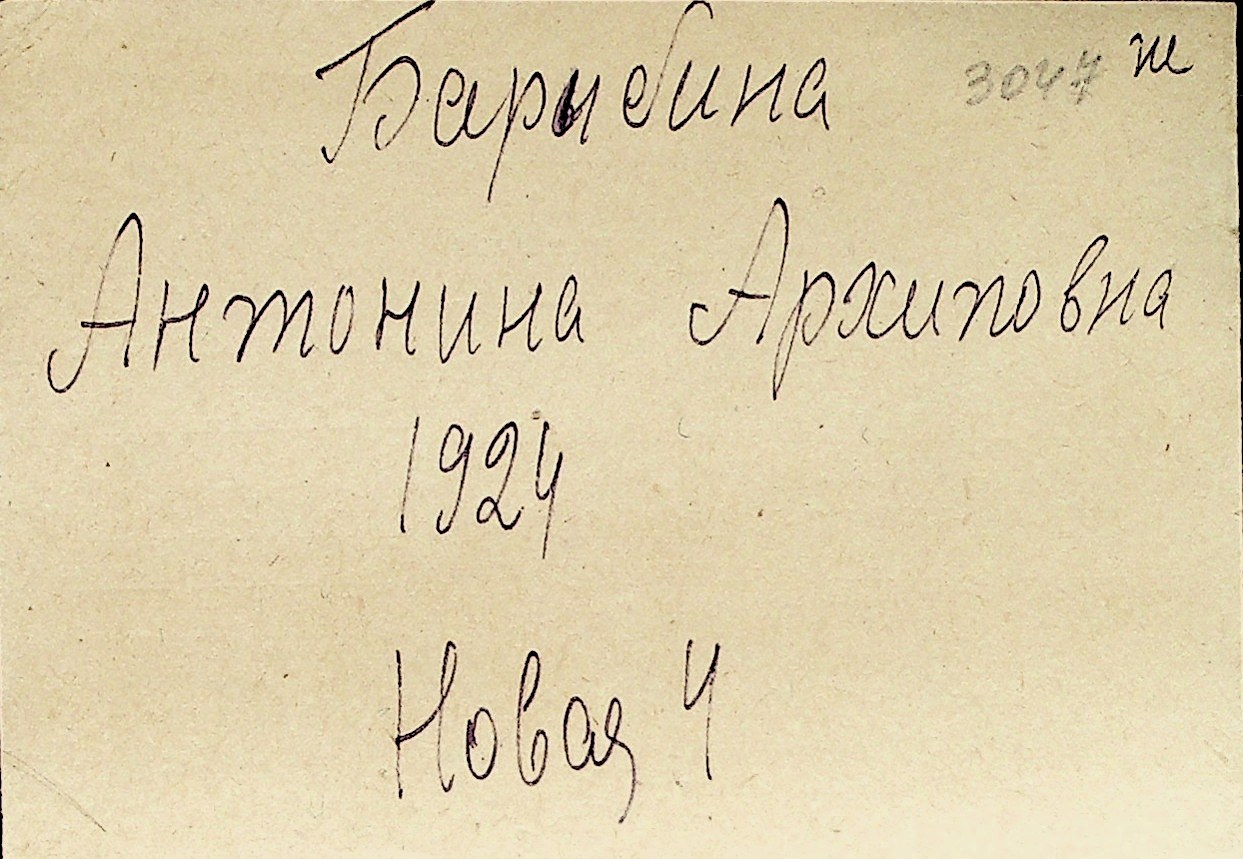 Барыбина 3047 ж
Антонина Архиповна
1924
Новая 4